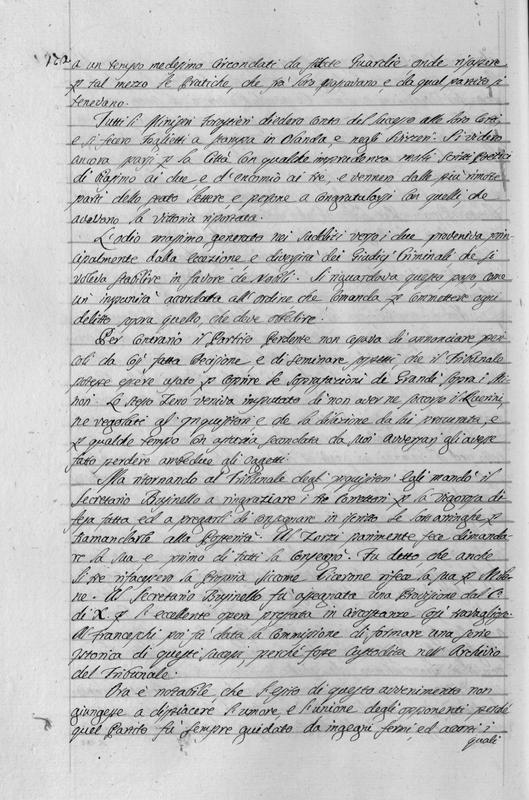 a un tempo medesimo circondati da fidate Guardie onde risapere
p tal mezzo le pratiche, che fra loro passavano, e da qual partito si
tenevano.
Tutti li Ministri Forestieri diedero conto del successo alle loro Corti,
e si fecero Foglietti a stampa in Olanda, e negli Svizzeri. Si videro
ancora sparsi p la Città con qualche imprudenza molti scritti Poetici
di biasimo ai due, e d'encomio ai tre, e vennero dalle più rimote
parti dello stato lettere e persone a congratularsi con quelli, che
avevano la vittoria riportata.
L'odio massimo generato nei sudditi verso i due, proveniva prin-
cipalmente dalla eccezione e diversità dei Giudici Criminali che si
voleva stabilire in favore de Nobili. Si riguardava questo passo, come
un' impunità accordata all'ordine che comanda p commettere ogni
delitto sopra quello, che deve obbedire.
Per contrario il Partito perdente non cessava di annonciare peri-
coli da così fatta decisione, e di seminare sospetti che il Tribunale
potesse essere usato p coprire le soprafazioni di Grandi sopra i Mi-
nori. Lo stesso Zeno veniva imputato di non aver ne scosso i
ne regolati gl'Inquisitori e che la dilazione da lui procurata, e
p qualche tempo con astuzia secondata da suoi avversarj gli avesse
fatto perdere ambedue gli oggetti.
Ma ritornando al Tribunale degli Inquisitori Egli mandò il
Secretario Businello a ringraziare i tre Correttori p la vigorosa di-
fesa fatta ed a pregarli di consegnare in iscritto le loro aringhe p
tramandarle alla Posterità. Al Zorzi parimente fece dimanda-
re la sua, e primo di tutti la consegnò. Fu detto che anche
li tre rifacessero la propria siccome Cicerone rifece la sua p Milo-
ne. Al Secretario Businello fù assegnata una provisione dal C.
di X. p l'eccellente opera prestata in circostanze così
Al Franceschi poi fù data la commissione di formare una
istorica di questi successi, perchè fosse custodita nell'Archivio
del Tribunale.
Ora è notabile che l'esito di questo avvenimento non
giungesse a dispiacere l'umore e l'unione degli opponenti perchè
quel Partito fù sempre guidato da ingegni fermi, ed accorti i
quali